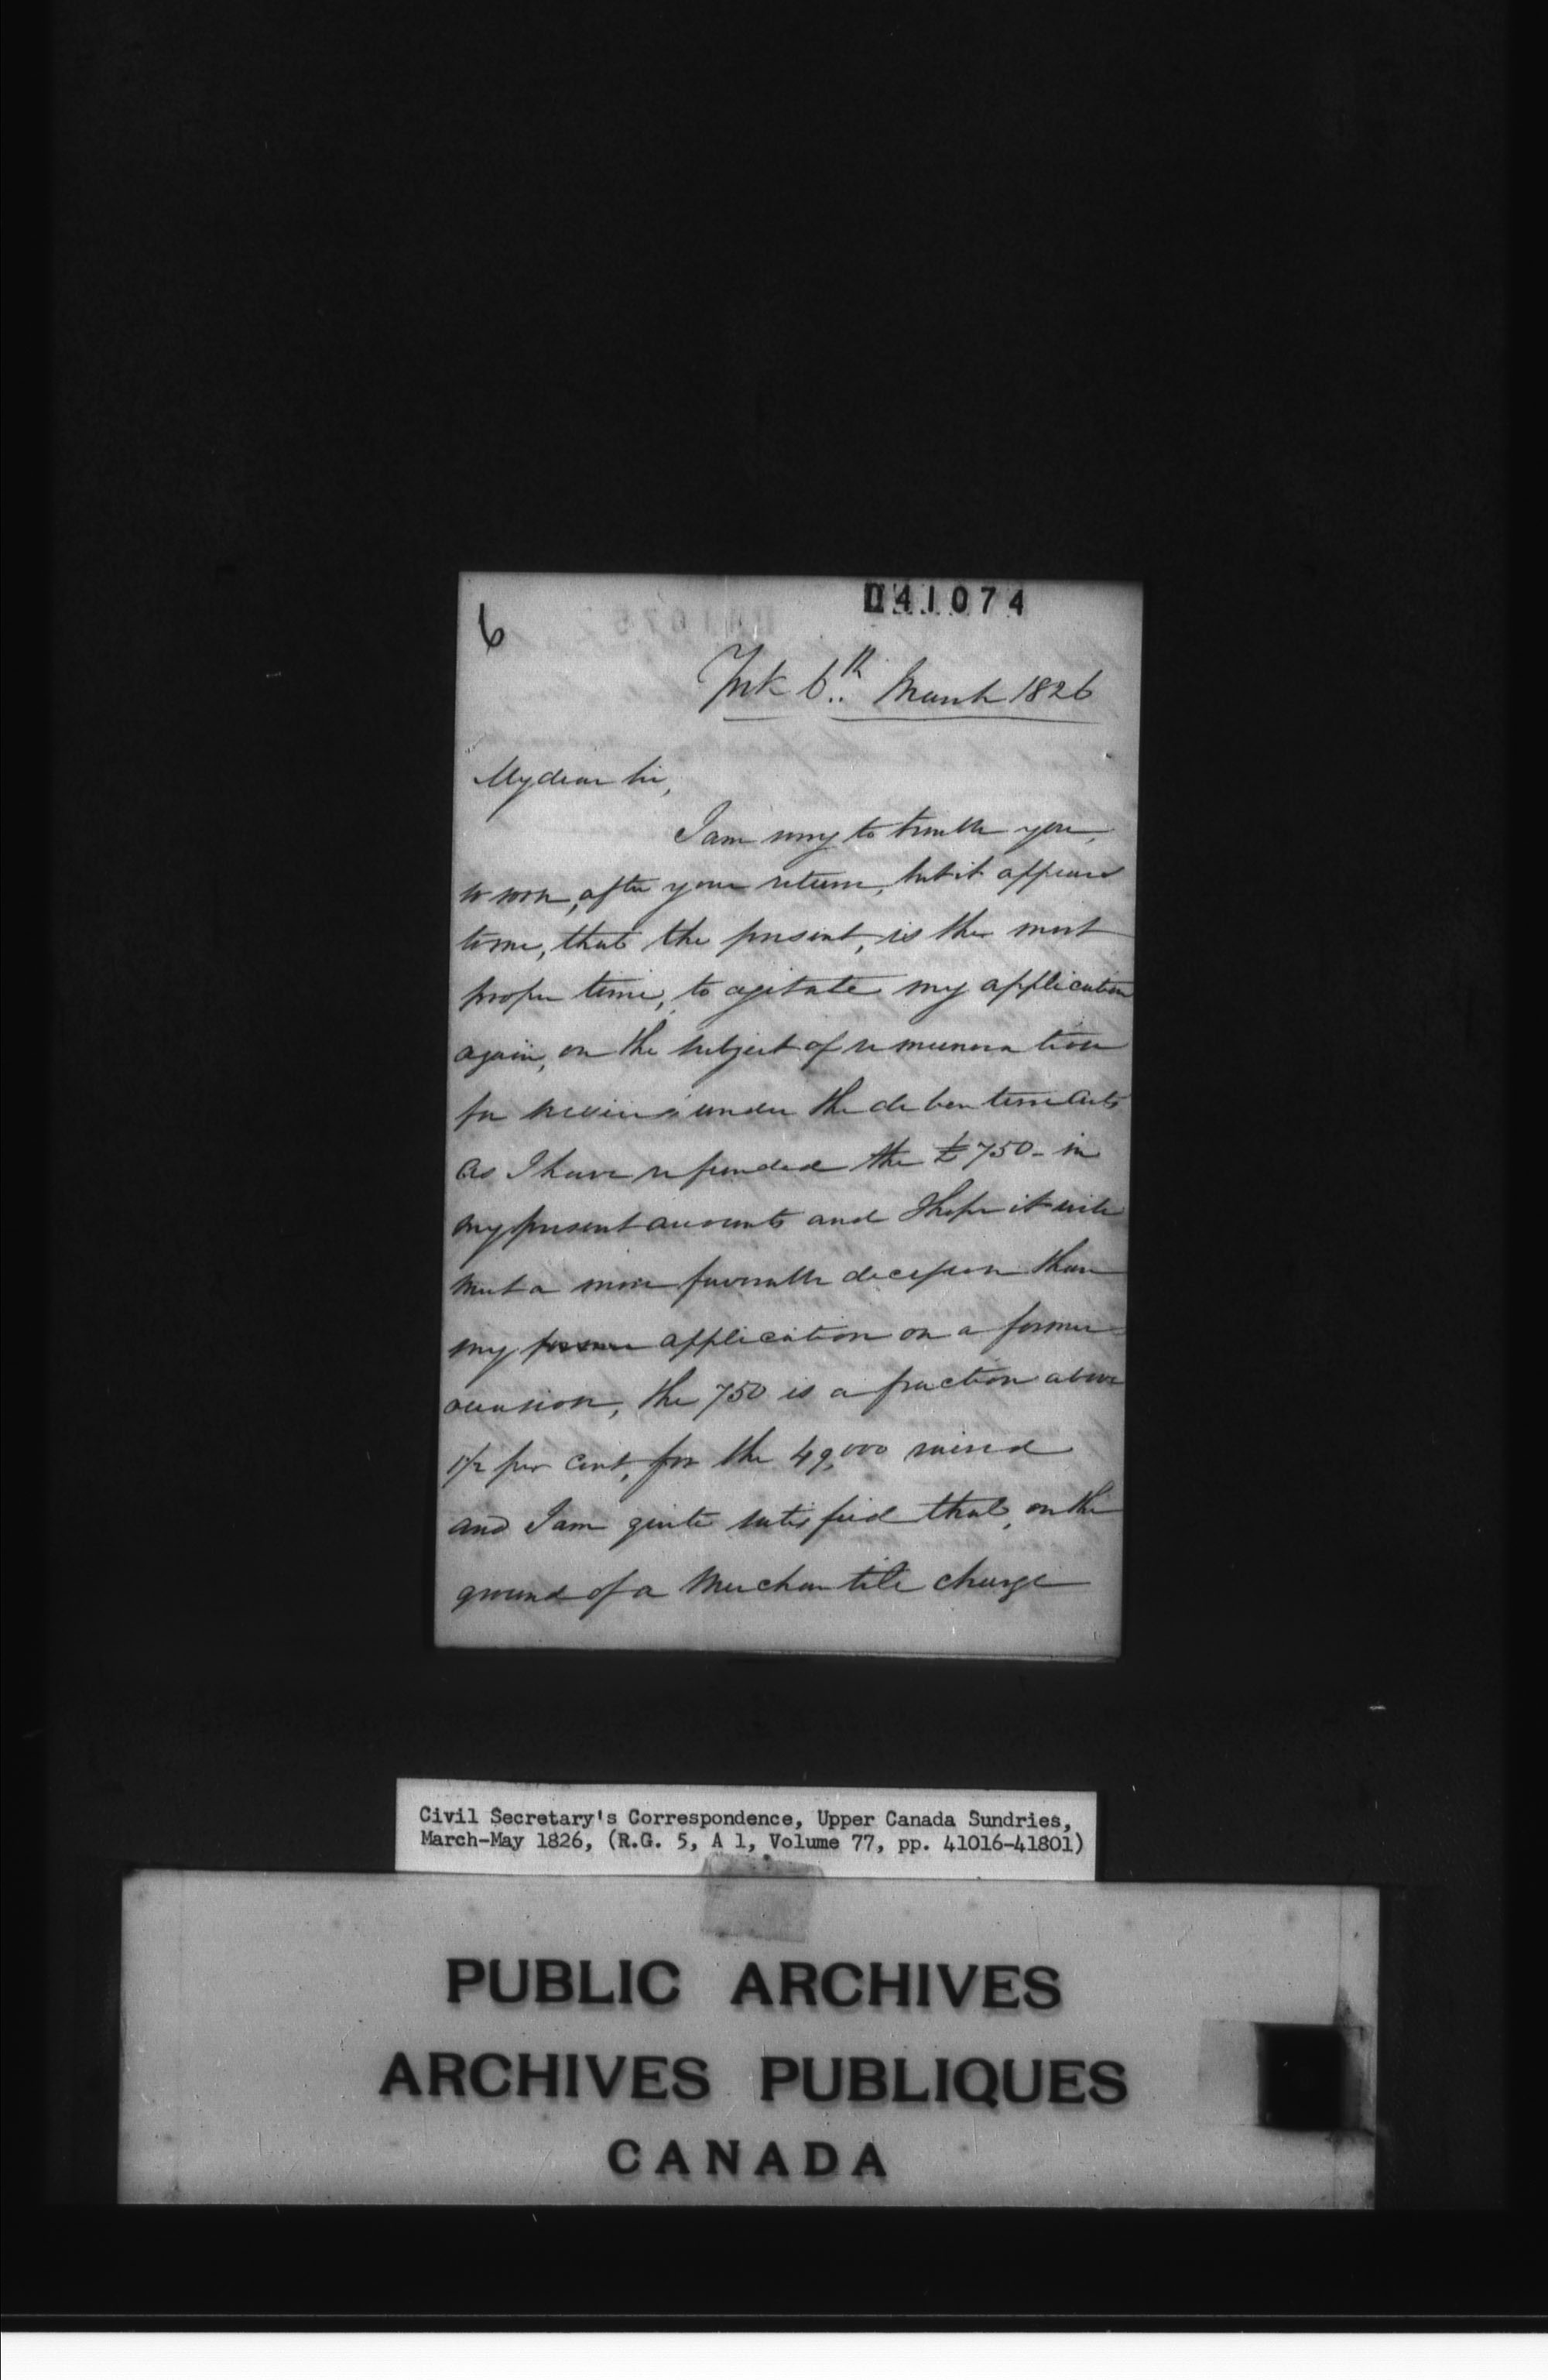 041074
6
York 6th March 1826
My dear Sir,
I am sorry to trouble you,
so soon, after your return, but it appears
to me, that the present, is the most
proper time, to agitate my application
again, on the subject of remuneration
for services under the debenture Acts
as I have refunded the £750- in
my present accounts and I hope it will
meet a more favorable decision than
my former application on a former
occasion, the 750 is a fraction above
1½ per cent, for the 49,000 raised
and I am quite satisfied that, on the
ground of a Merchantile charge
Civil Secretary's Correspondence, Upper Canada Sundries,
March-May 1826, (R.G. 5, A 1, Volume 77, pp. 41016-41801)
PUBLIC ARCHIVES
ARCHIVES PUBLIQUES
CANADA